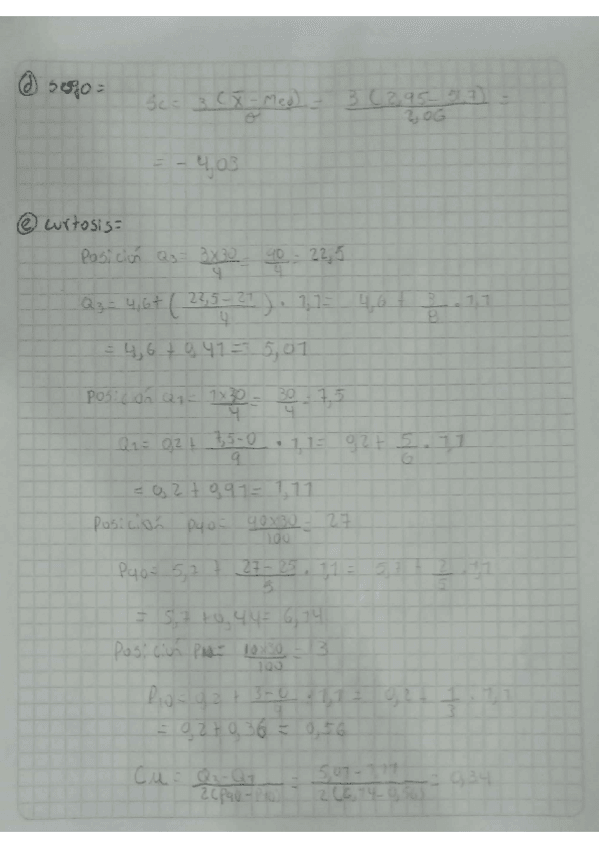 d) sesgo =
Sc = 3(x̄ - Med)/σ = 3(2,95 - 5,7)/2,06 =
= - 4,03
e) curtosis =
Posición Q3 = 3x30/4 = 90/4 = 22,5
Q3 = 4,6 + (22,5 - 21/4) · 1,1 = 4,6 + 3/8 · 1,1
= 4,6 + 0,41 = 5,01
Posición Q1 = 1x30/4 = 30/4 = 7,5
Q1 = 0,2 + 7,5 - 0/9 · 1,1 = 0,2 + 5/6 · 1,1
= 0,2 + 0,91 = 1,11
Posición P90 = 90x30/100 = 27
P90 = 5,7 + 27 - 25/5 · 1,1 = 5,7 + 2/5 · 1,1
= 5,7 + 0,44 = 6,14
Posición P10 = 10x30/100 = 3
P10 = 0,2 + 3 - 0/9 · 1,1 = 0,2 + 1/3 · 1,1
= 0,2 + 0,36 = 0,56
Cu = Q3 - Q1/2(P90 - P10) = 5,01 - 1,11/2(6,14 - 0,56) = 0,34